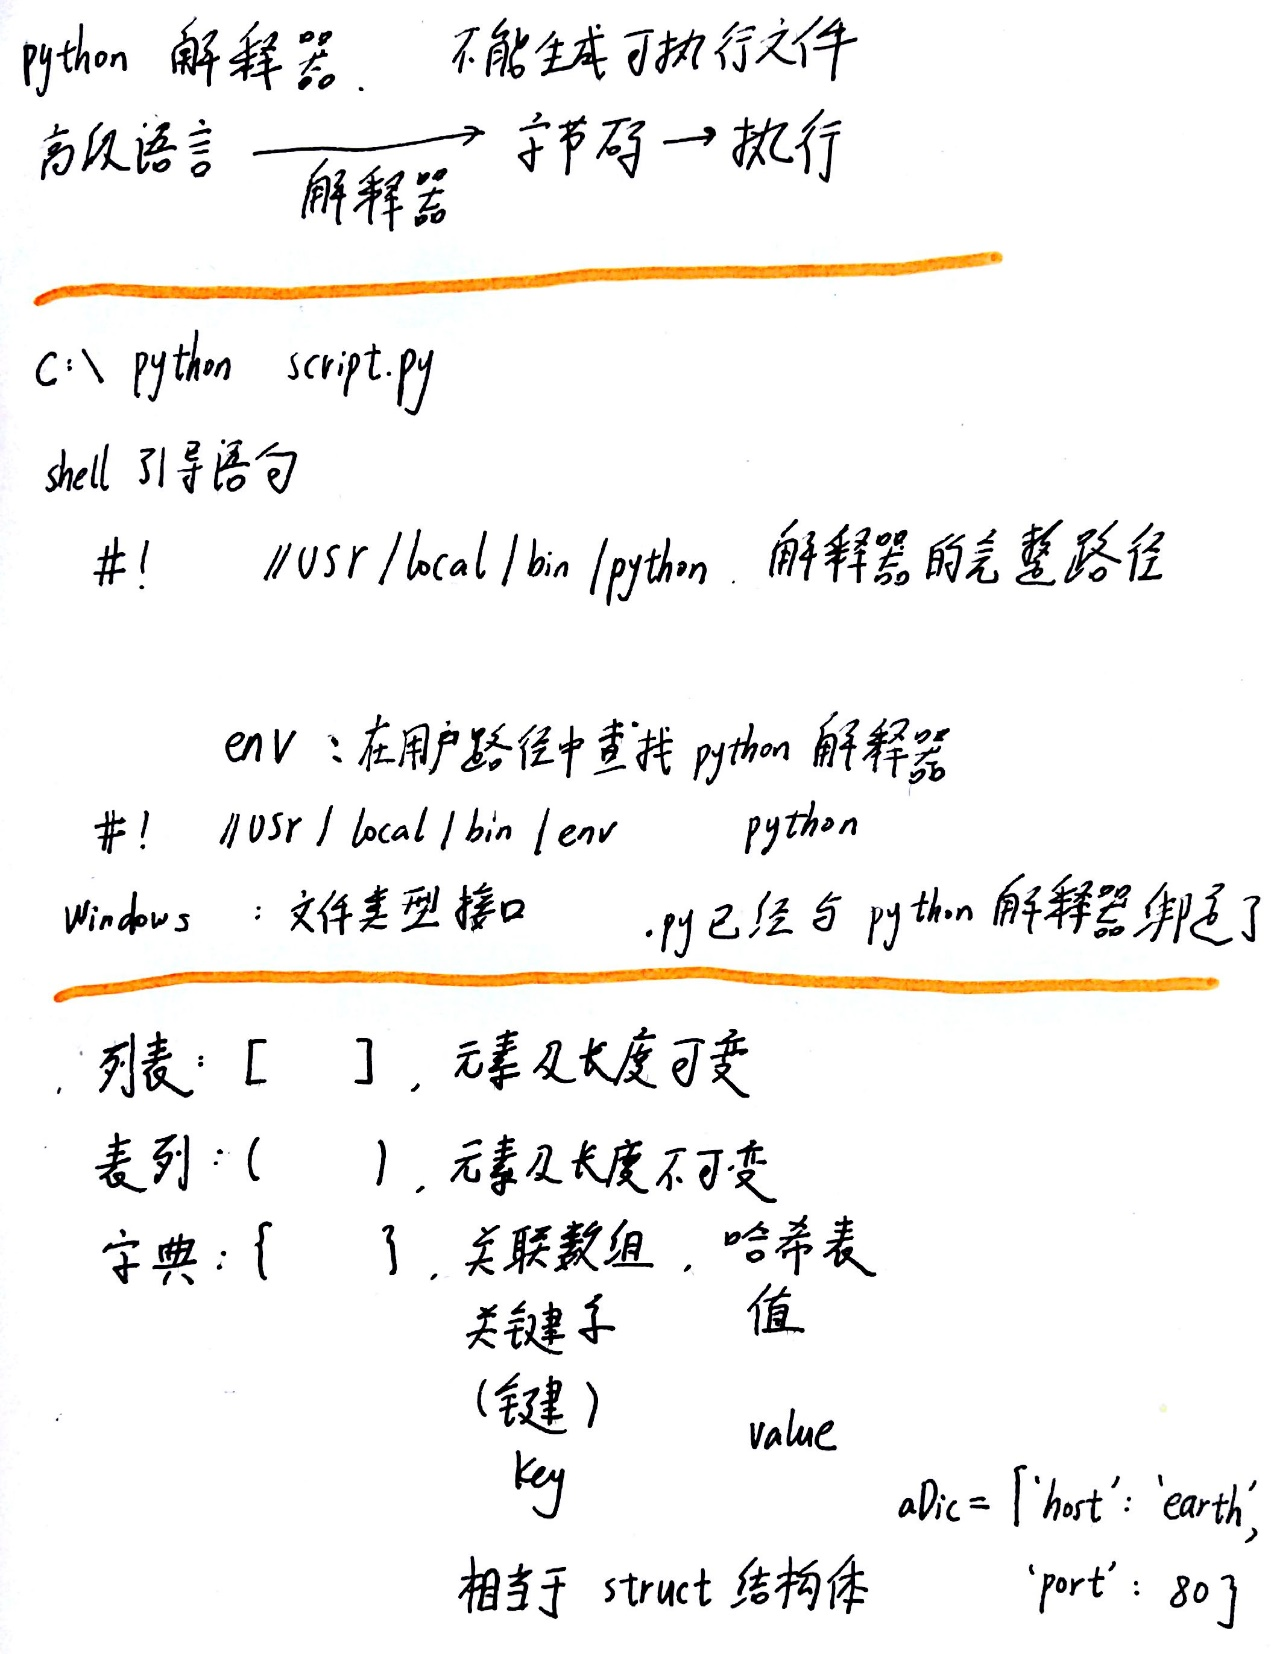 python 解释器. 不能生成可执行文件
高级语言 → 字节码 → 执行
解释器
C:\ python script.py
shell 引导语句
#! //usr/local/bin/python. 解释器的完整路径
env : 在用户路径中查找 python 解释器
#! //usr/local/bin/env python
Windows : 文件类型接口 .py已经与python解释器绑定了
列表: [ ], 元素及长度可变
表列: ( ), 元素及长度不可变
字典: { }, 关联数组, 哈希表
关键字 值
(键)
value
key
aDic = ['host': 'earth',
相当于 struct 结构体 'port': 80}